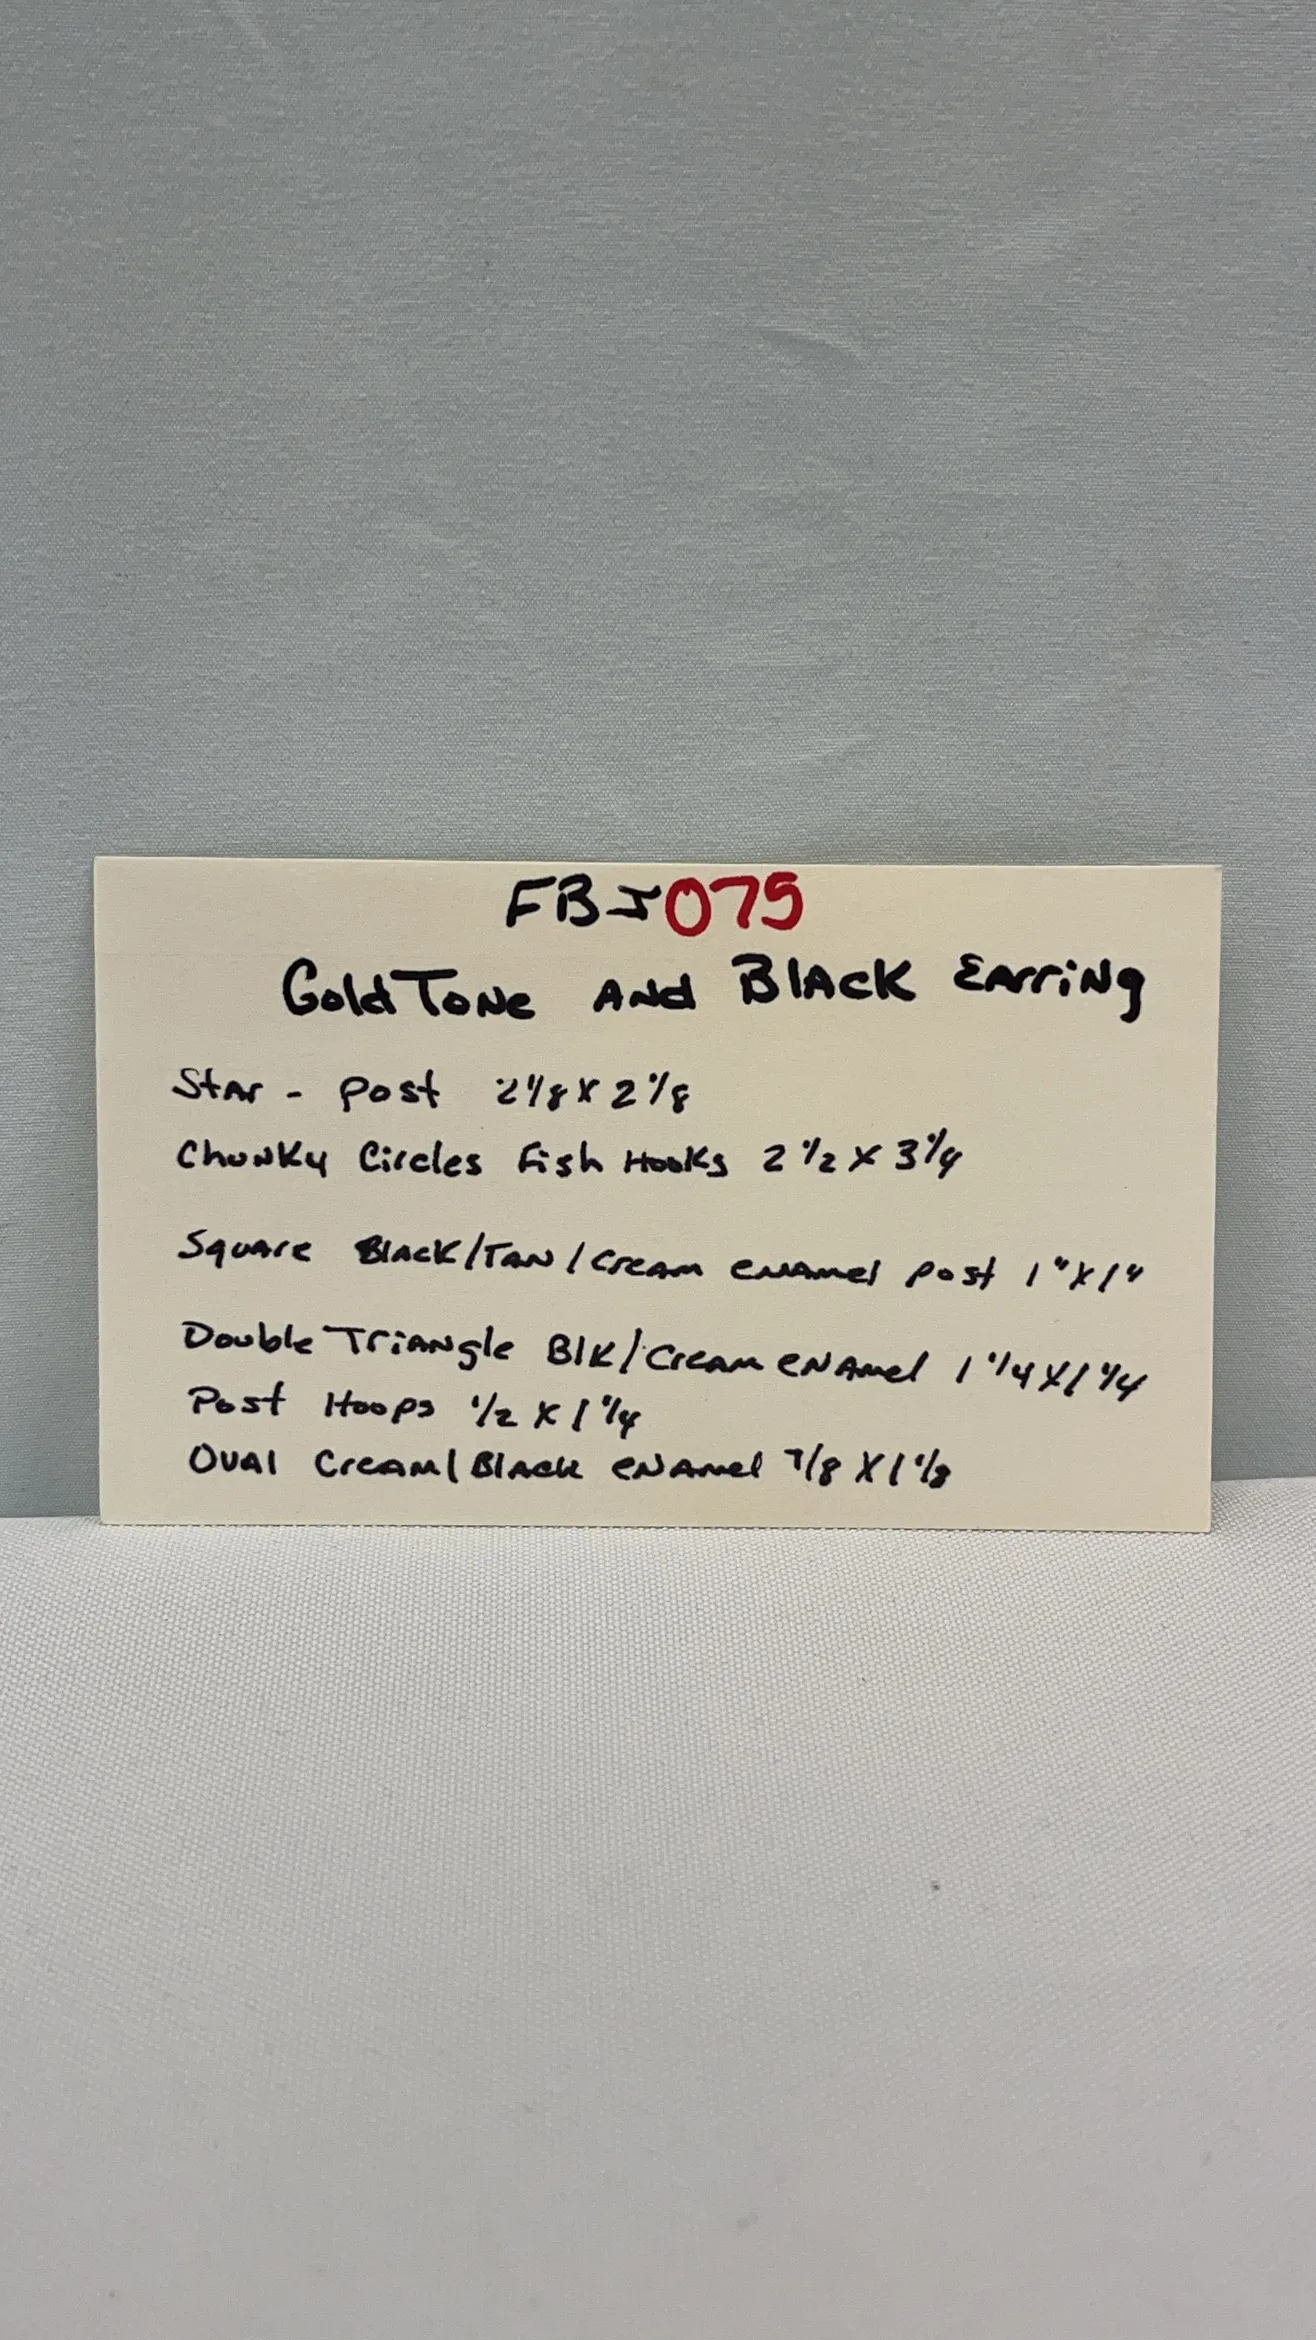 FBJ075
Gold Tone And Black Earring
Star - Post 2 1/8 X 2 1/8
Chunky Circles fish Hooks 2 1/2 X 3 1/4
Square Black/Tan/Cream enamel post 1" X 1"
Double Triangle Blk/Cream enamel 1 1/4 X 1 1/4
Post Hoops 1/2 X 1 1/4
Oval Cream/Black enamel 7/8 X 1 1/8